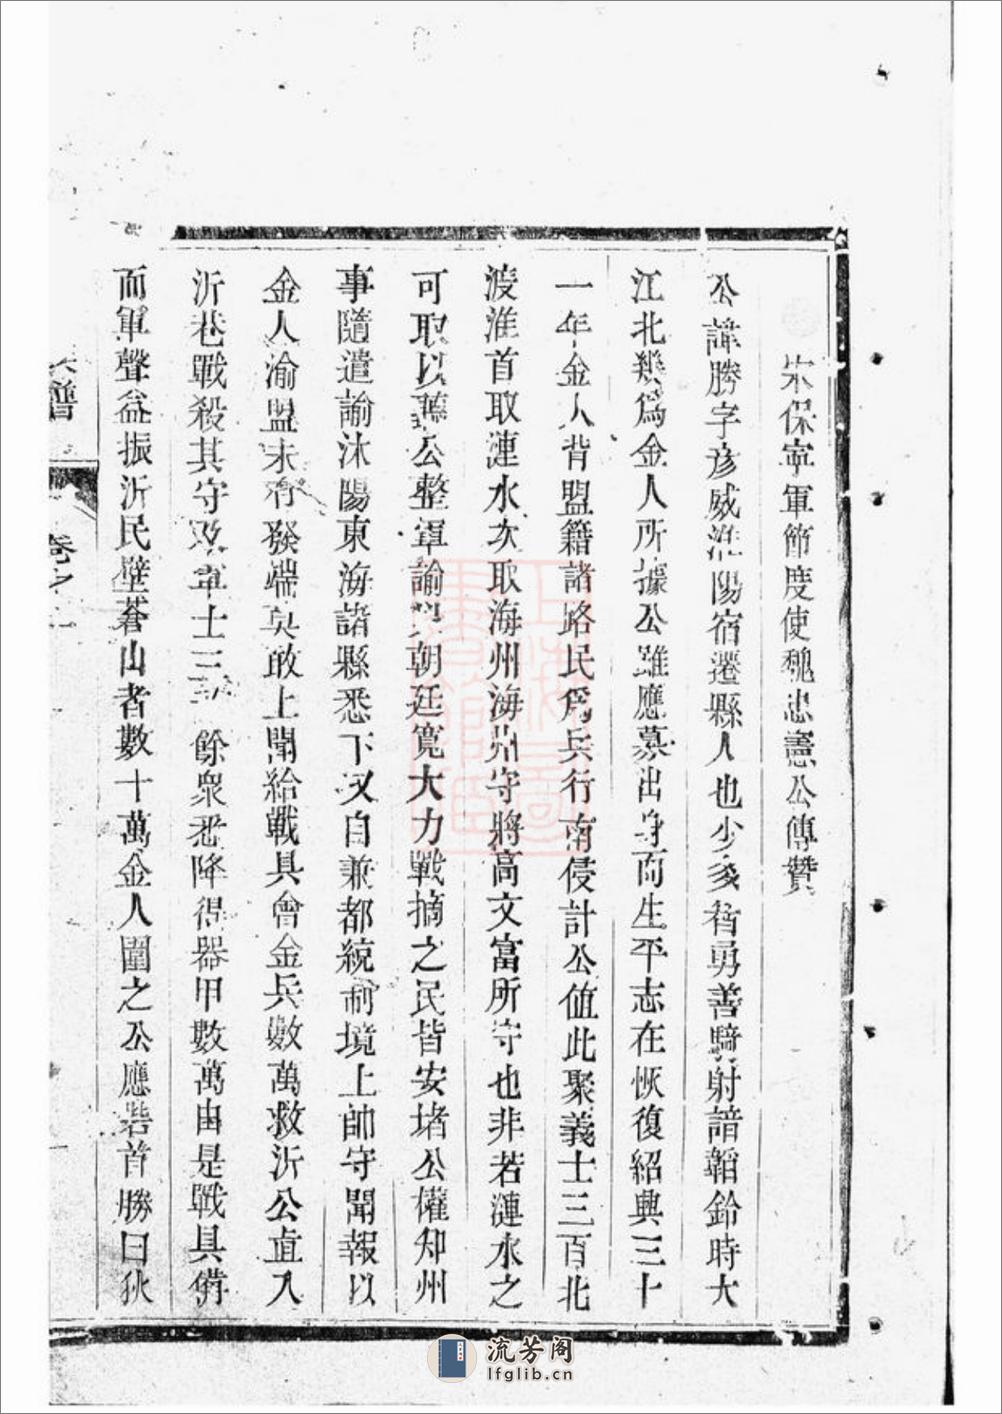 宋保寧軍節度使魏忠憲公傳贊
公諱勝字彥威淮陽宿遷縣人也少多智勇善騎射諳韜鈴時大
江北幾爲金人所據公雖應募出身而生平志在恢復紹興三十
一年金人背盟籍諸路民爲兵行南侵計公值此聚義士三百北
渡淮首取漣水次取海州海州守將高文富所守也非若漣水之
可取以公整軍諭以朝廷寬大力戰摛之民皆安堵公權知州
事隨遣諭沐陽東海諸縣悉下又自兼都統制境上帥守聞報以
金人渝盟未有發端莫敢上聞給戰具會金兵數萬救沂公直入
沂巷戰殺其守及軍士三餘衆悉降得器甲數萬由是戰具備
而軍聲益振沂民壁蒼山者數十萬金人圍之公應砦首勝曰狄
譜
卷之
上海圖書館藏
流芳阁
lfglib.cn